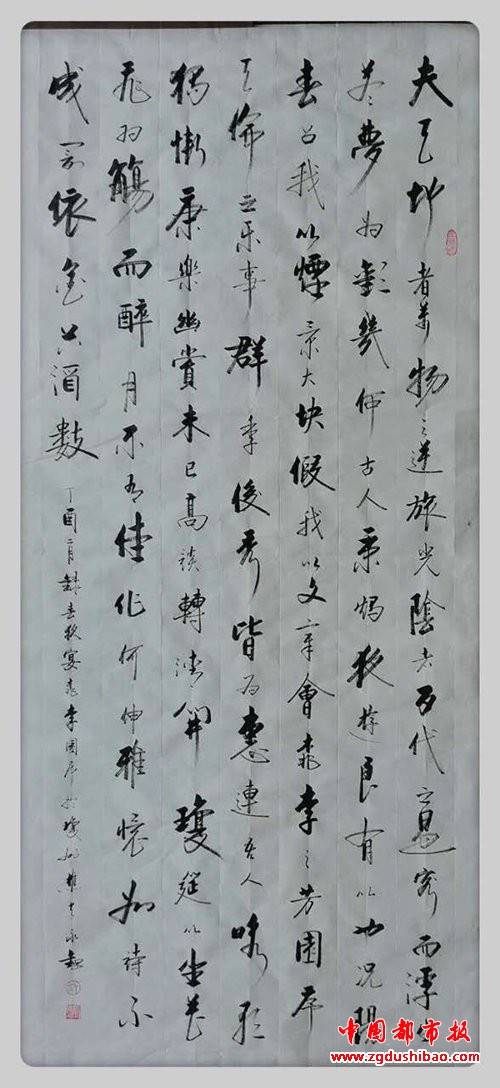 夫天地者萬物之逆旅光陰者百代之過客而浮生
若夢為歡幾何古人秉燭夜遊良有以也況陽
春召我以煙景大塊假我以文章會桃李之芳園序
天倫之乐事群季俊秀皆為惠連吾人咏歌
獨慚康樂幽賞未已高談轉清開瓊筵以坐花
飛羽觴而醉月不有佳作何伸雅懷如詩不
成罰依金谷酒數
丁酉二月錄春夜宴桃李園序於瓊州
中国都市报
www.zgdushibao.com